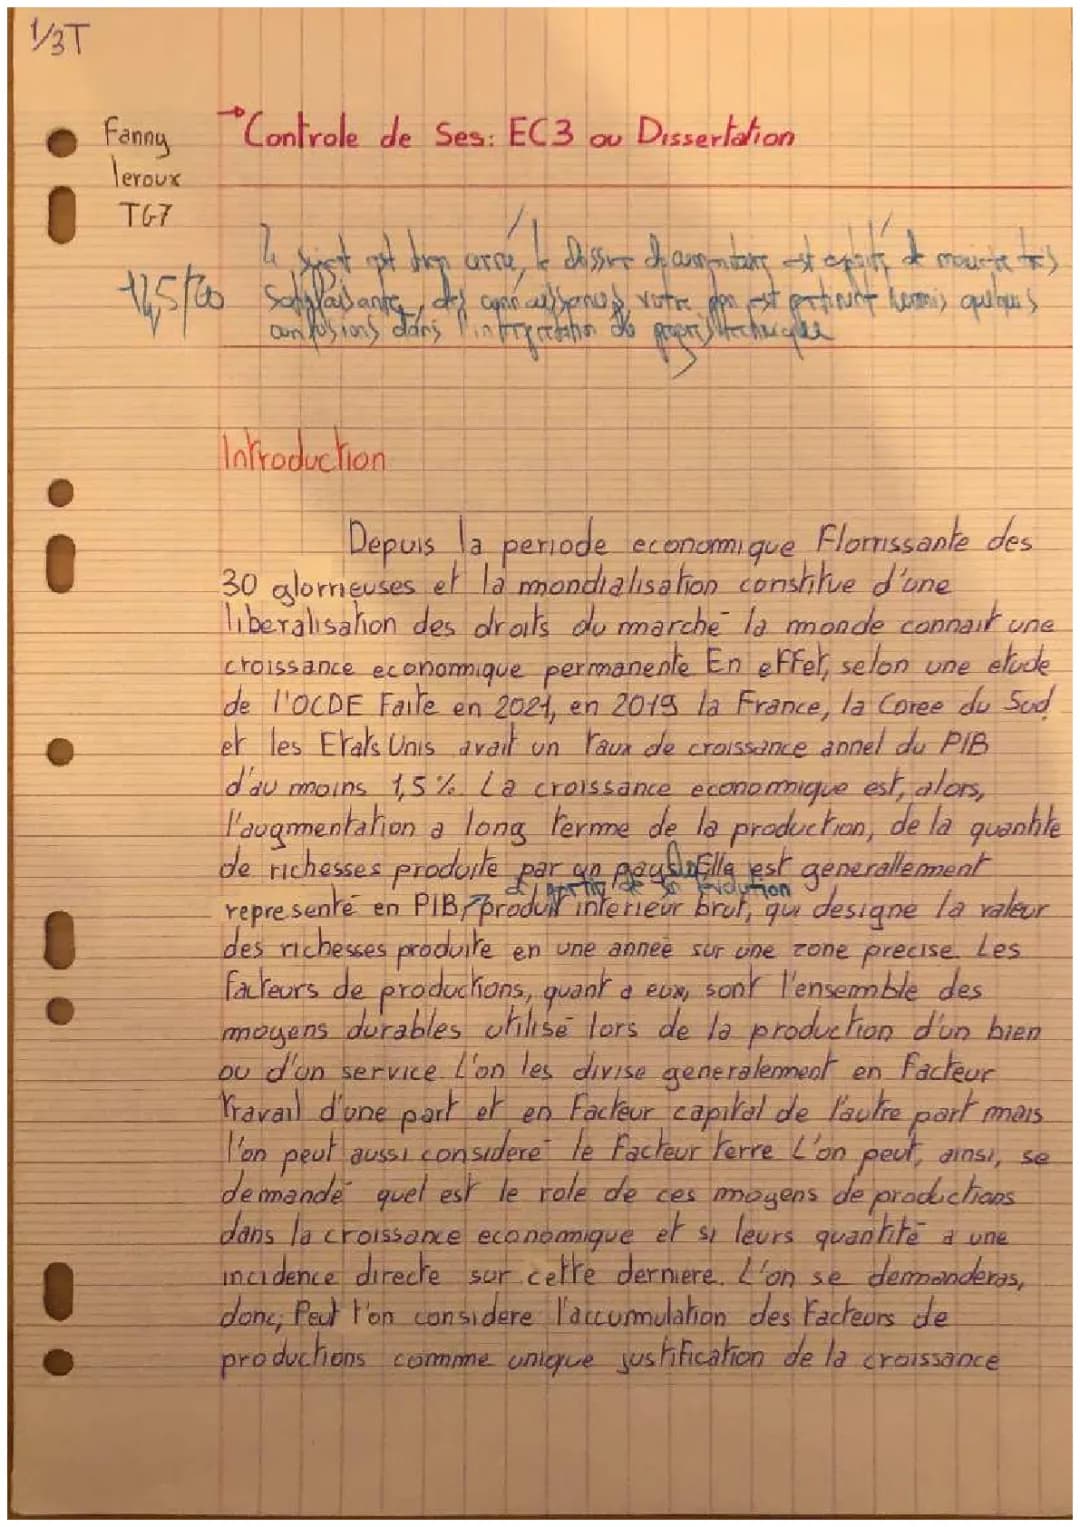 1/3T
→Controle de Ses: EC3 ou Dissertation
Fanny
leroux
TG7
sujet est bien cerné, le dossier documentaire est exploité de manière très
satisfaisante, des connaissances, votre plan est pertinent hormis quelques
confusions dans l'interprétation de technique
Introduction
Depuis la periode economique Florrissante des
30 glorrieuses et la mondialisation constitue d'une
liberalisation des droits du marché la monde connait une
croissance economique permanente En effet, selon une etude
de l'OCDE Faite en 2021, en 2019 la France, la Coree du Sud
et les Etats Unis avait un taux de croissance annel du PIB
d'au moins 1,5%. La croissance economique est, alors,
l'augmentation a long terme de la production, de la quantite
de richesses produite par un pays Elle est generallement
à partir de son évolution
representé en PIB, produit interieur brut, qui designe la valeur
des richesses produite en une année sur une zone precise. Les
facteurs de productions, quant a eux, sont l'ensemble des
moyens durables utilisé lors de la production d'un bien
ou d'un service. L'on les divise generalement en Facteur
Travail d'une part et en Facteur capital de l'autre part mais
l'on peut aussi consideré le Facteur terre L'on peut, ainsi, se
demandé quel est le role de ces moyens de productions
dans la croissance economique et si leurs quantité a une
incidence directe sur cette derniere. L'on se demanderas,
donc; Peut t'on considere l'accumulation des Facteurs de
productions comme unique justification de la croissance